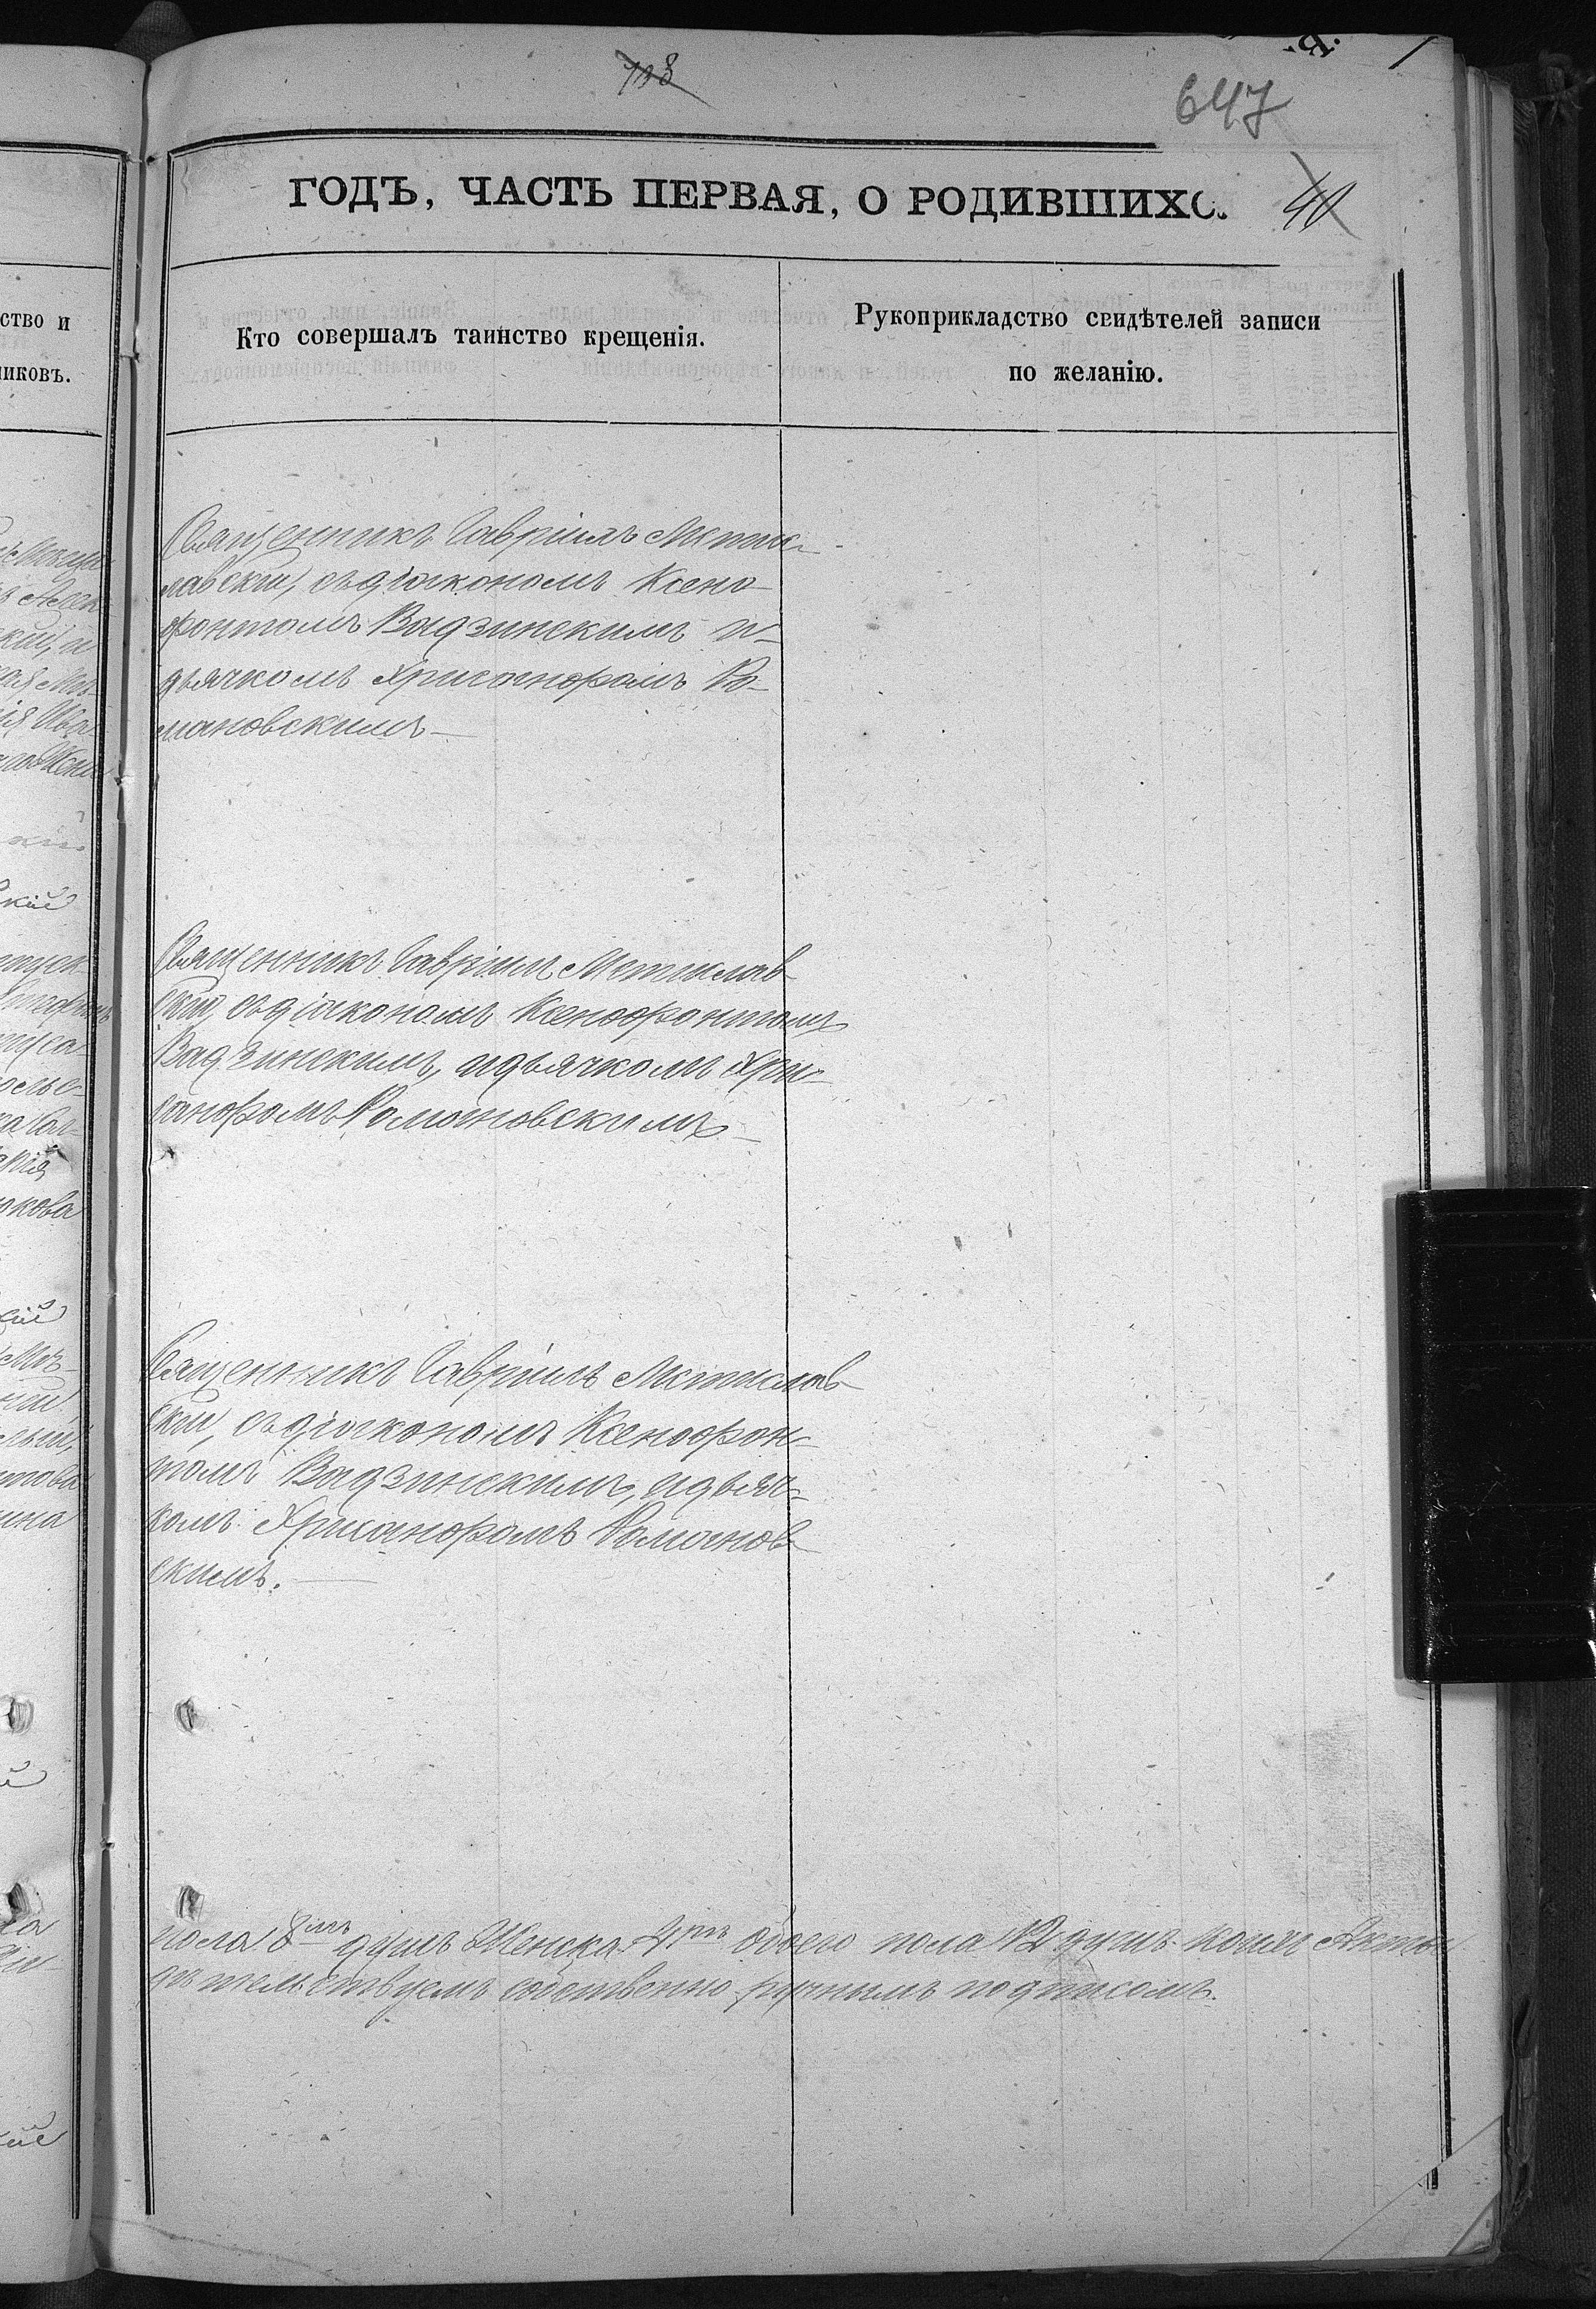 108
647
ГОДЪ, ЧАСТЬ ПЕРВАЯ, О РОДИВШИХС.
40
ство и
никовъ.
Кто совершалъ таинство крещенія.
Рукоприкладство свидѣтелей записи
по желанію.
Священникъ Гавріилъ Мстис-
лавскій, съ діакономъ Ксено-
фонтомъ Вадзинскимъ и
дьячкомъ Хрисанфомъ Ро-
мановскимъ
Священникъ Гавріилъ Мстислав-
скій, съ діакономъ Ксенофонтомъ
Вадзинскимъ, и дьячкомъ Хри-
санфомъ Романовскимъ
Священникъ Гавріилъ Мстислав-
скій, съ діакономъ Ксенофон-
томъ Вадзинскимъ, и дьяч-
комъ Хрисанфомъ Романов-
скимъ.
пола 8 душъ Женска 4 обоего пола 12 душъ
дѣтельствуемъ собственно ручнымъ подписомъ.